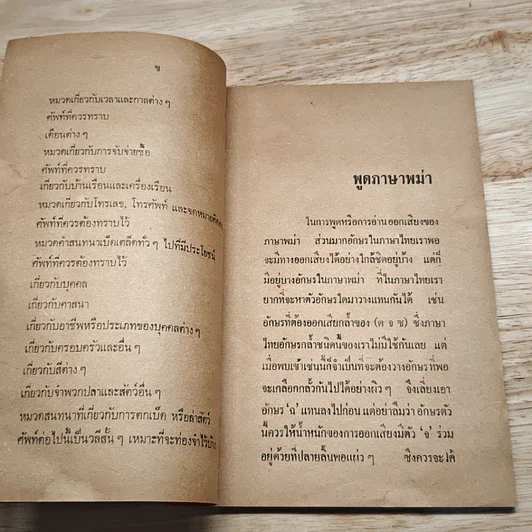 ข
หมวดเกี่ยวกับเวลาและกาลต่าง ๆ
ศัพท์ที่ควรทราบ
เดือนต่าง ๆ
หมวดเกี่ยวกับการจับจ่ายซื้อ
ศัพท์ที่ควรทราบ
เกี่ยวกับบ้านเรือนและเครื่องเรือน
หมวดเกี่ยวกับโทรเลข, โทรศัพท์ และจดหมาย
ศัพท์ที่ควรต้องทราบไว้
หมวดคำสนทนาเบ็ดเตล็ดทั่ว ๆ ไปที่มีประโยชน์
ศัพท์ที่ควรต้องทราบไว้
เกี่ยวกับบุคคล
เกี่ยวกับศาสนา
เกี่ยวกับอาชีพหรือประเภทของบุคคลต่าง ๆ
เกี่ยวกับครอบครัวและอื่น ๆ
เกี่ยวกับสีต่าง ๆ
เกี่ยวกับจำพวกปลาและสัตว์อื่น ๆ
หมวดสนทนาที่เกี่ยวกับการตกเบ็ด หรือล่าสัตว์
ศัพท์ต่อไปนี้เป็นวลีสั้น ๆ เหมาะที่จะท่องจำไว้บ้าง
พูดภาษาพม่า
ในการพูดหรือการอ่านออกเสียงของ
ภาษาพม่า ส่วนมากอักษรในภาษาไทยเราพอ
จะมีทางออกเสียงได้อย่างใกล้ชิดอยู่บ้าง แต่ก็
มีอยู่บางอักษรในภาษาพม่า ที่ในภาษาไทยเรา
ยากที่จะหาตัวอักษรใดมาวางแทนกันได้ เช่น
อักษรที่ต้องออกเสียงกล้ำของ (ด จ ช) ซึ่งภาษา
ไทยอักษรกล้ำชนิดนี้ของเราไม่มีใช้กันเลย แต่
เมื่อพบเข้าเช่นนี้ก็จำเป็นที่จะต้องวางอักษรที่พอ
จะเกลือกกลั้วกันไปได้อย่างผิว ๆ จึงเลี่ยงเอา
อักษร 'ฉ' แทนลงไปก่อน แต่อย่าลืมว่า อักษรตัว
นี้ควรให้น้ำหนักของการออกเสียงมีตัว 'จ' ร่วม
อยู่ด้วยที่ปลายลิ้นพอแผ่ว ๆ ซึ่งควรจะได้